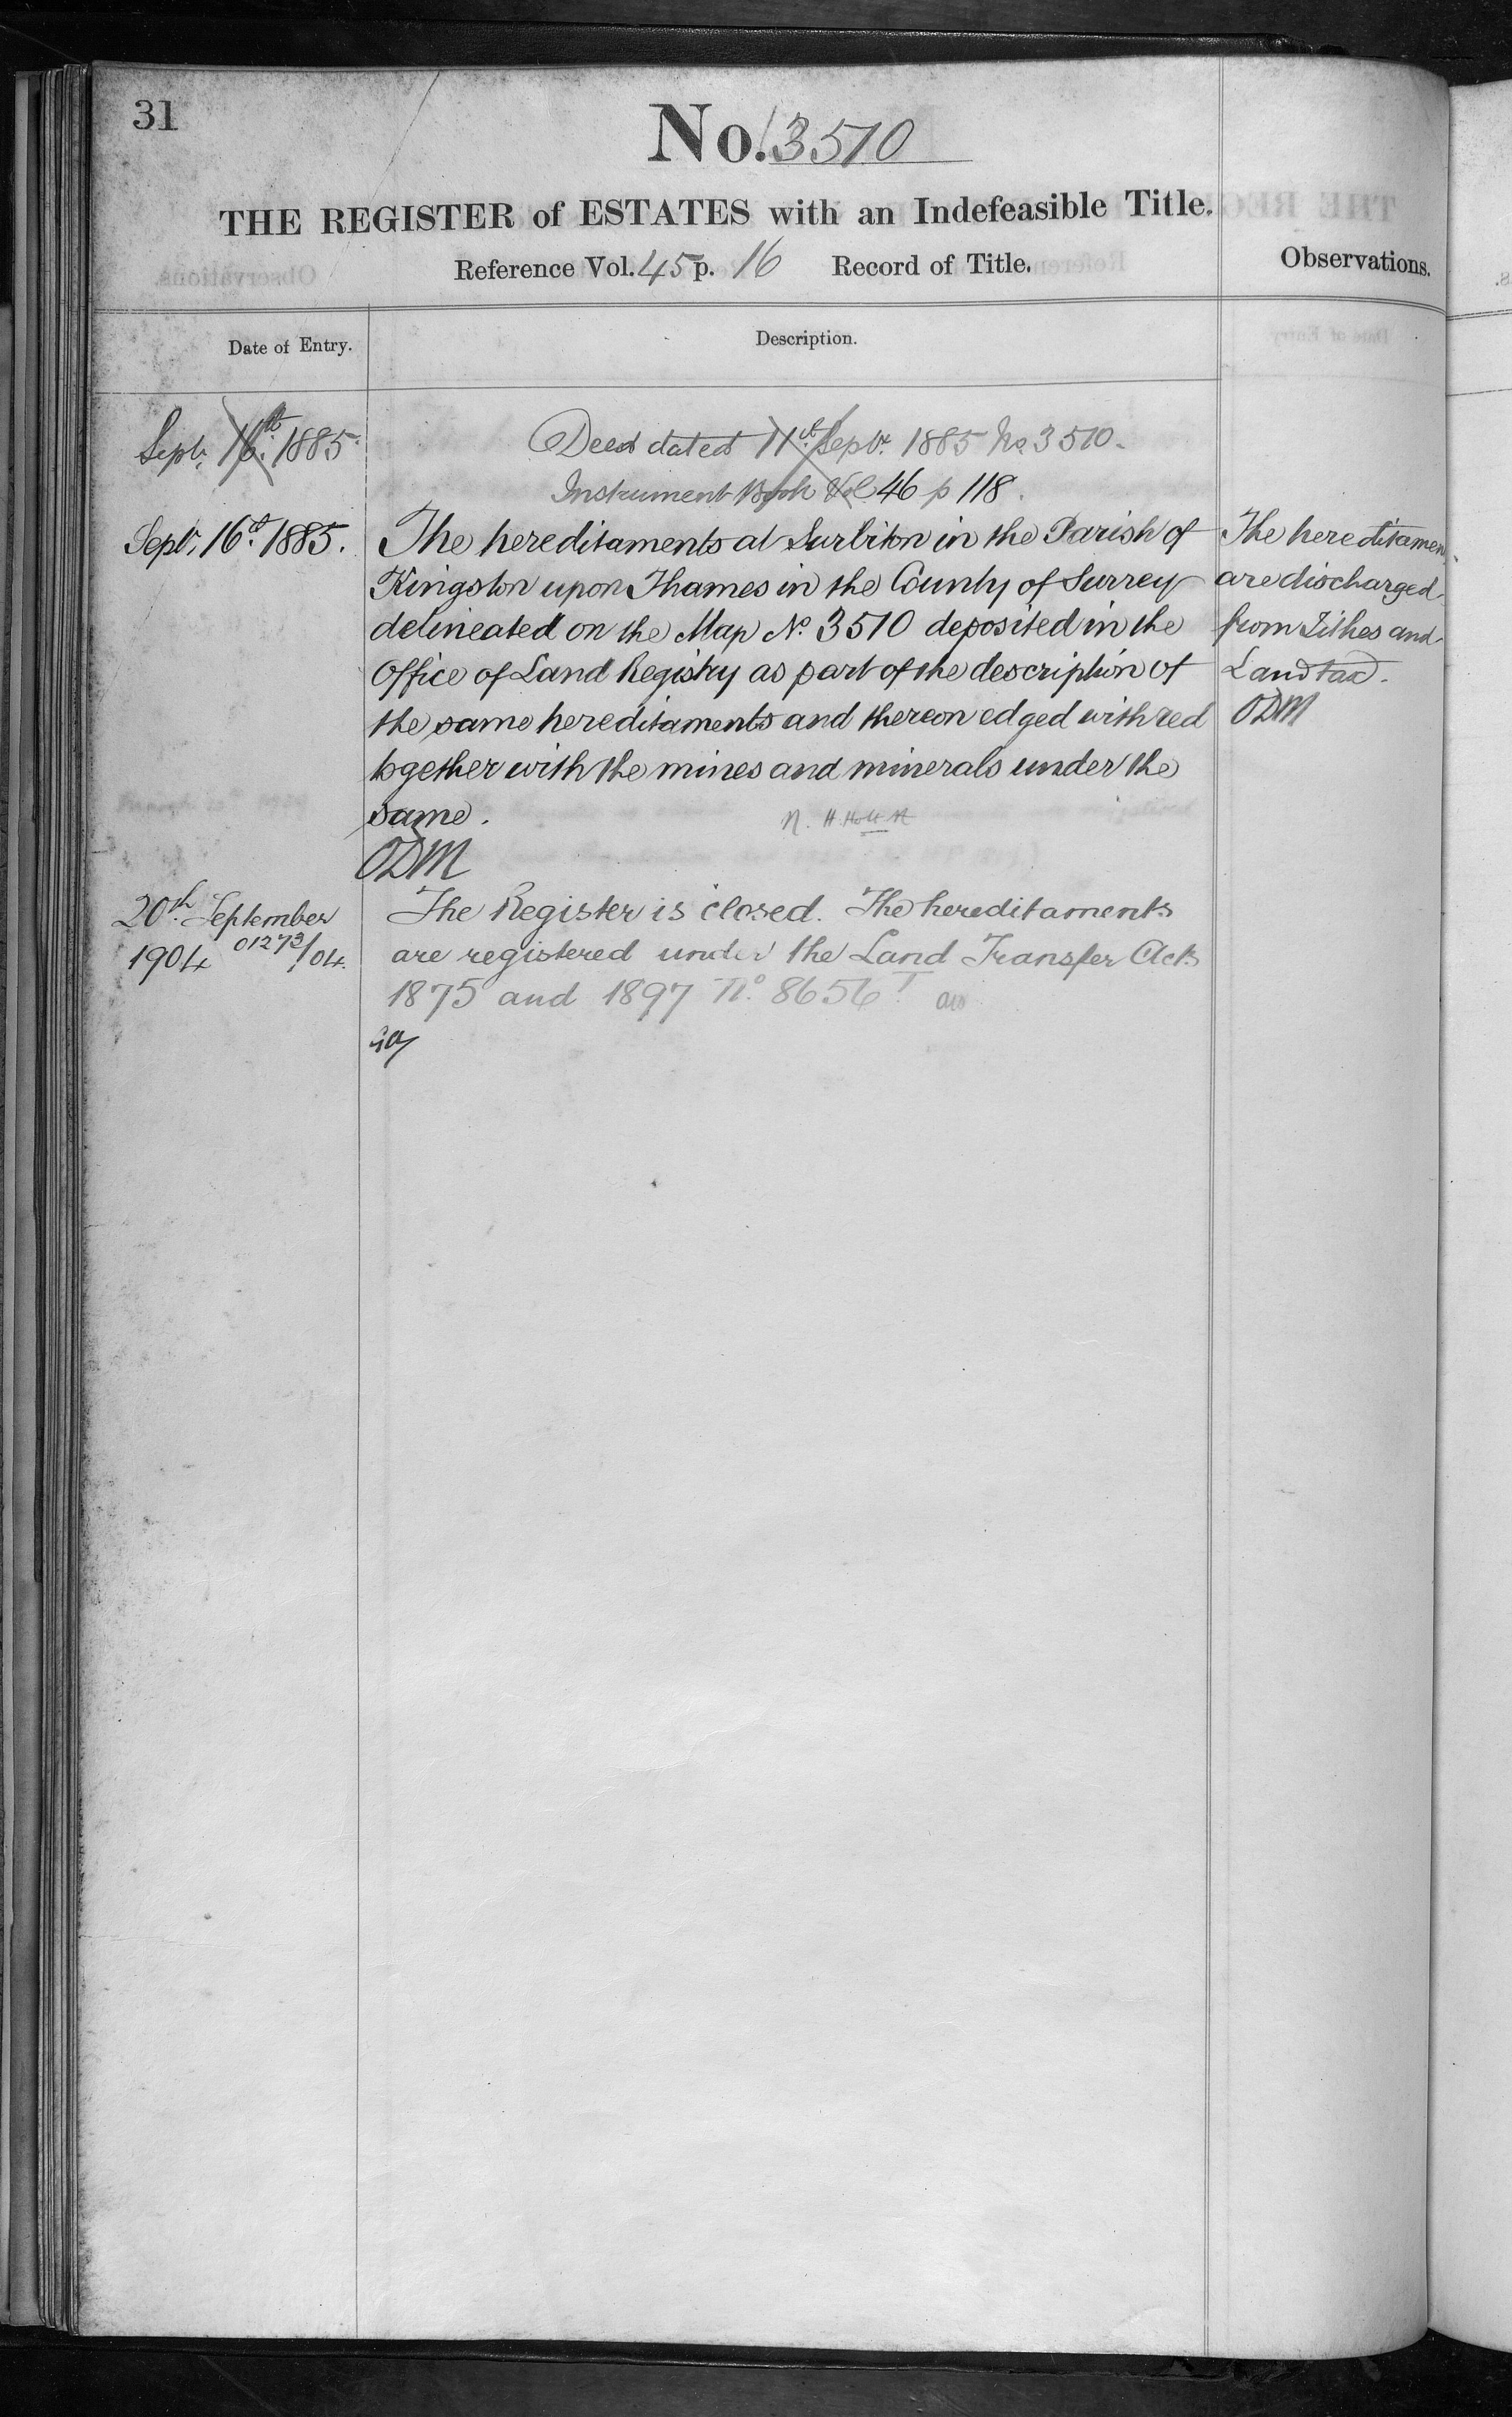 31
No. 3510
THE REGISTER of ESTATES with an Indefeasible Title.
Reference Vol. 45 p. 16 Record of Title.
Observations.
Date of Entry.
Description.
Sept. 16th 1885
Deed dated 11th Septr. 1885 No. 3510.
Instrument Book Vol 46 p 118.
Septr. 16th 1885.
The hereditaments at Surbiton in the Parish of
Kingston upon Thames in the County of Surrey
delineated on the Map No. 3510 deposited in the
Office of Land Registry as part of the description of
the same hereditaments and thereon edged with red
together with the mines and minerals under the
same.
ODM
The hereditamen
are discharged
from Tithes and
Land tax.
ODM
20th September
1904 01273/04.
The Register is closed. The hereditaments
are registered under the Land Transfer Acts
1875 and 1897 No. 8656